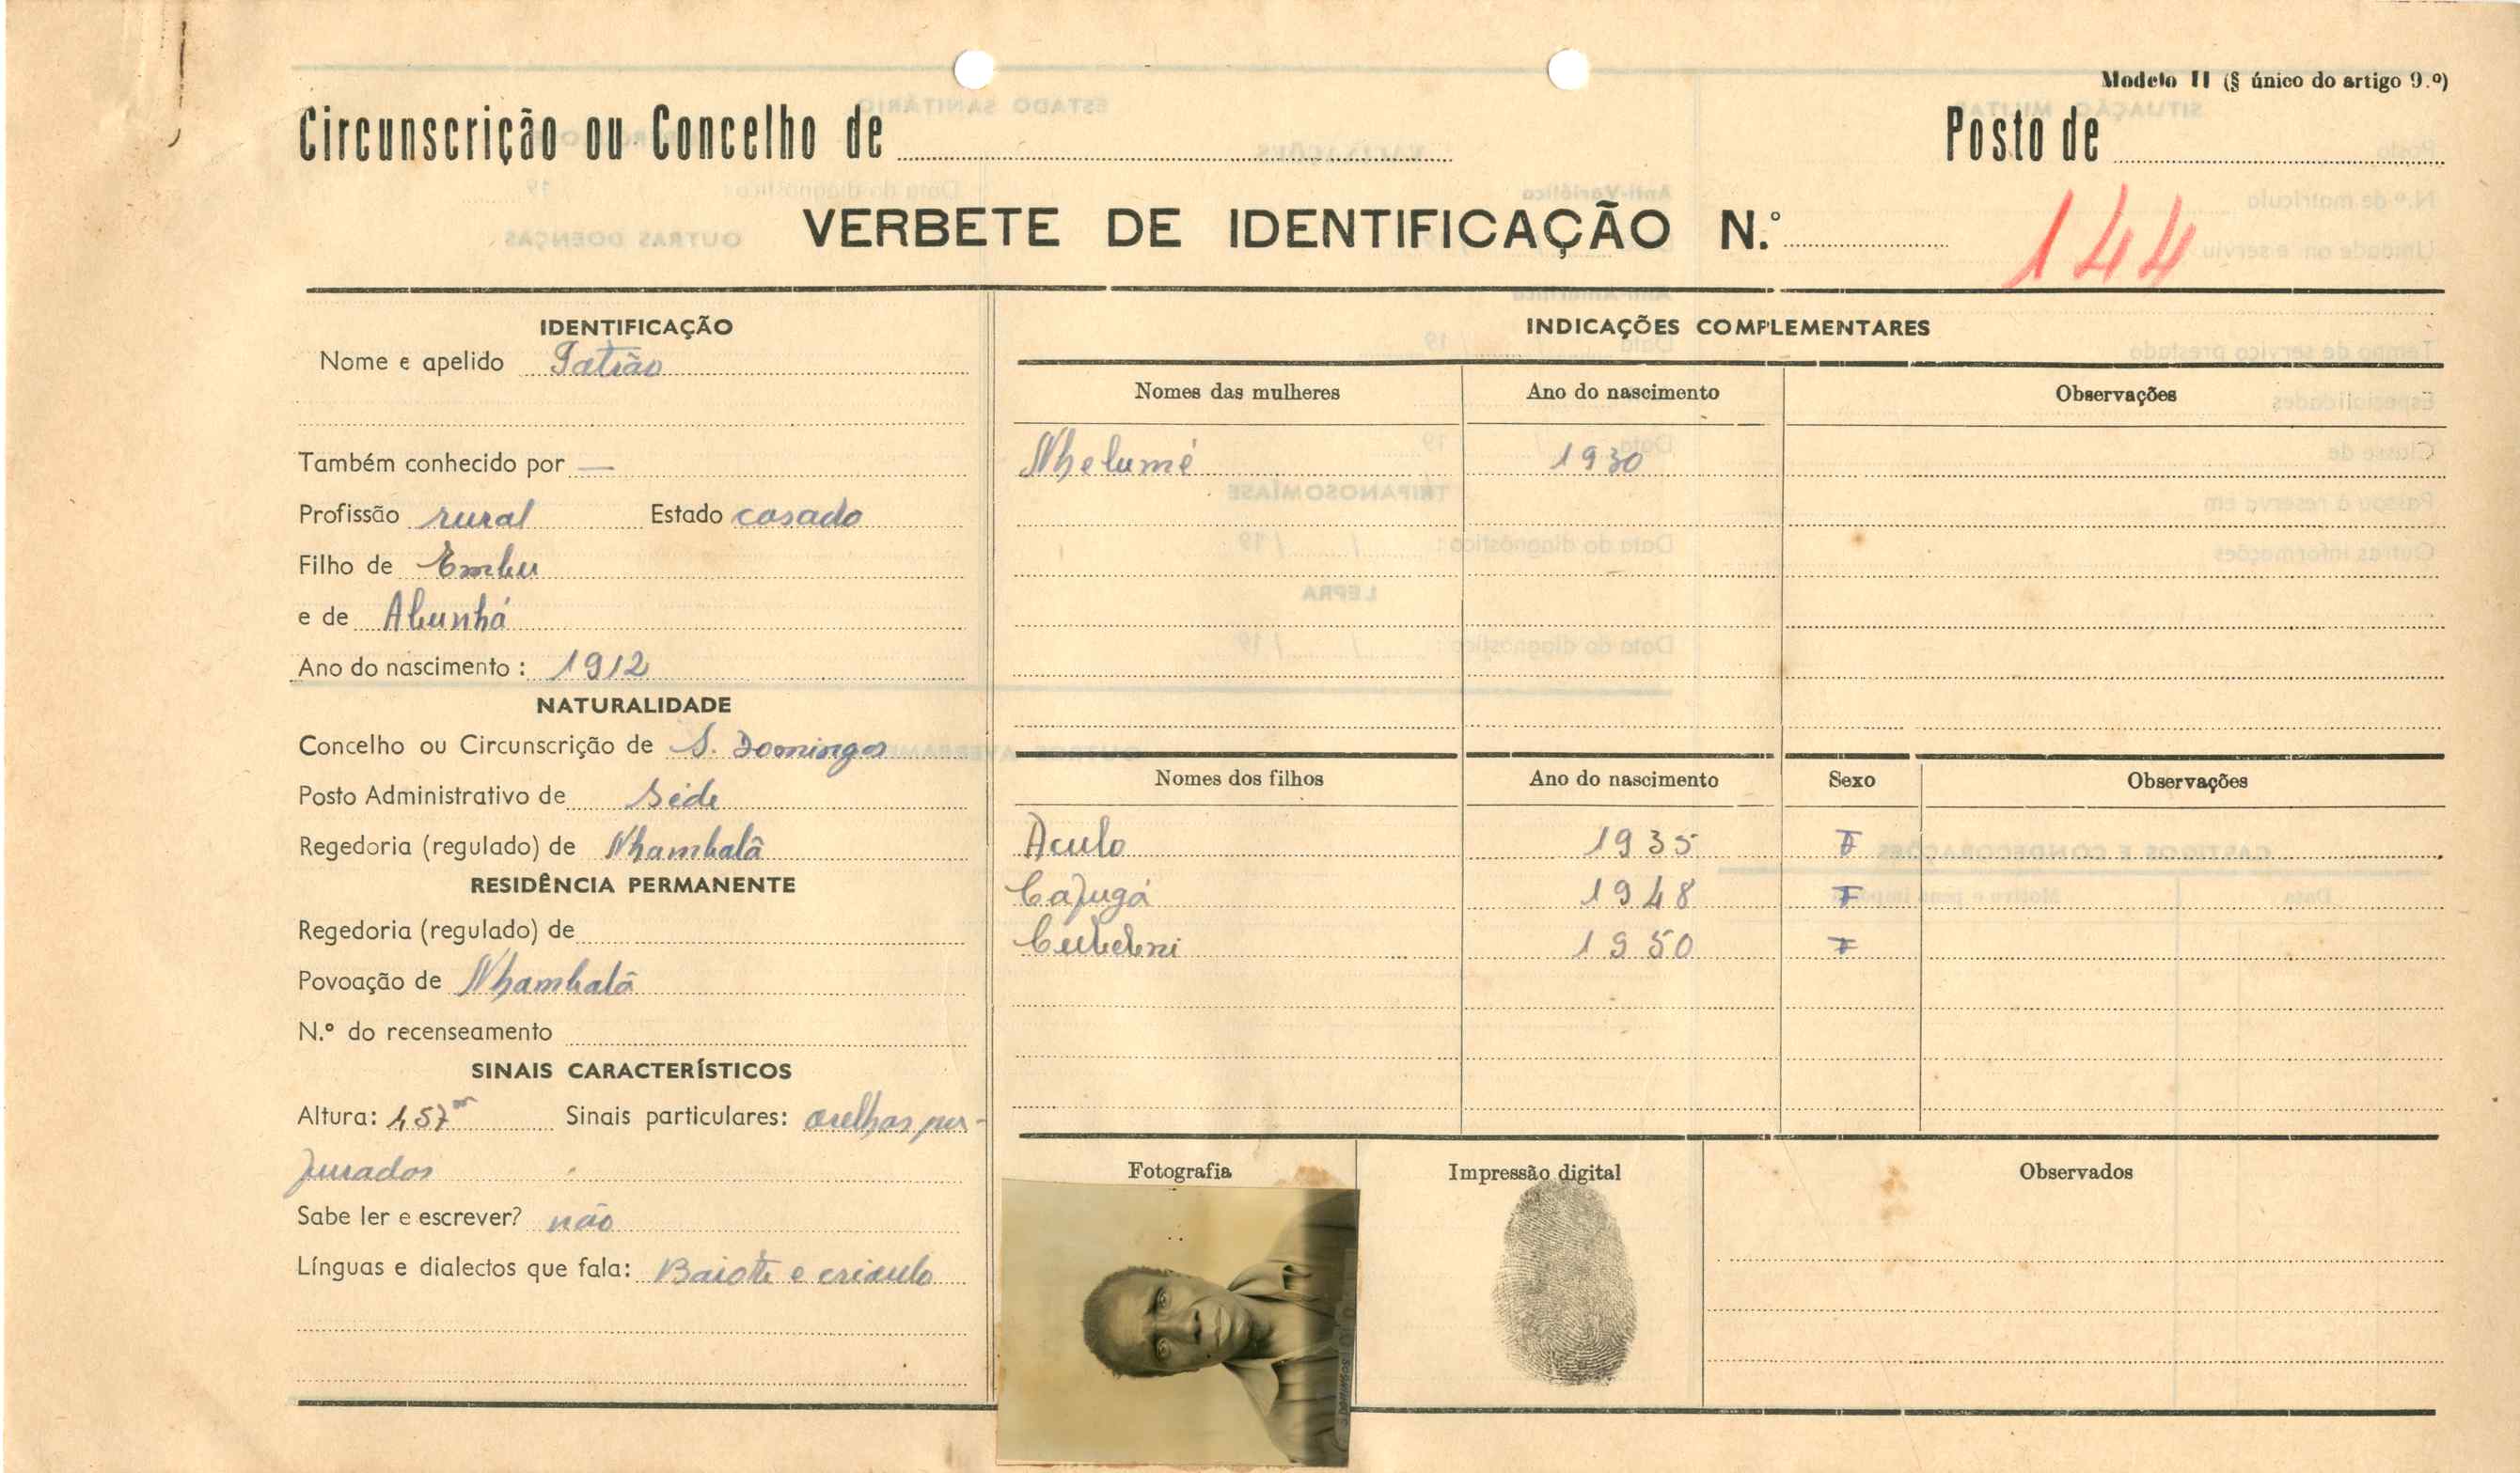 Modelo II (§ único do artigo 9.º)
Circunscrição ou Concelho de
Posto de
VERBETE DE IDENTIFICAÇÃO N.º
144
IDENTIFICAÇÃO
Nome e apelido
Também conhecido por —
Profissão rural Estado casado
Filho de Embu
e de Abunhá
Ano do nascimento: 1912
NATURALIDADE
Concelho ou Circunscrição de S. Domingos
Posto Administrativo de Sede
Regedoria (regulado) de Nhambalã
RESIDÊNCIA PERMANENTE
Regedoria (regulado) de
Povoação de Nhambalã
N.º do recenseamento
SINAIS CARACTERÍSTICOS
Altura: 1,57m Sinais particulares: orelhas per-
furados
Sabe ler e escrever? não
Línguas e dialectos que fala: Baiote e crioulo
INDICAÇÕES COMPLEMENTARES
Nomes das mulheres Ano do nascimento Observações
Nhelumé 1930
Nomes dos filhos Ano do nascimento Sexo Observações
Aculo 1935 F
Cafugá 1948 F
1950 F
Fotografia Impressão digital Observados